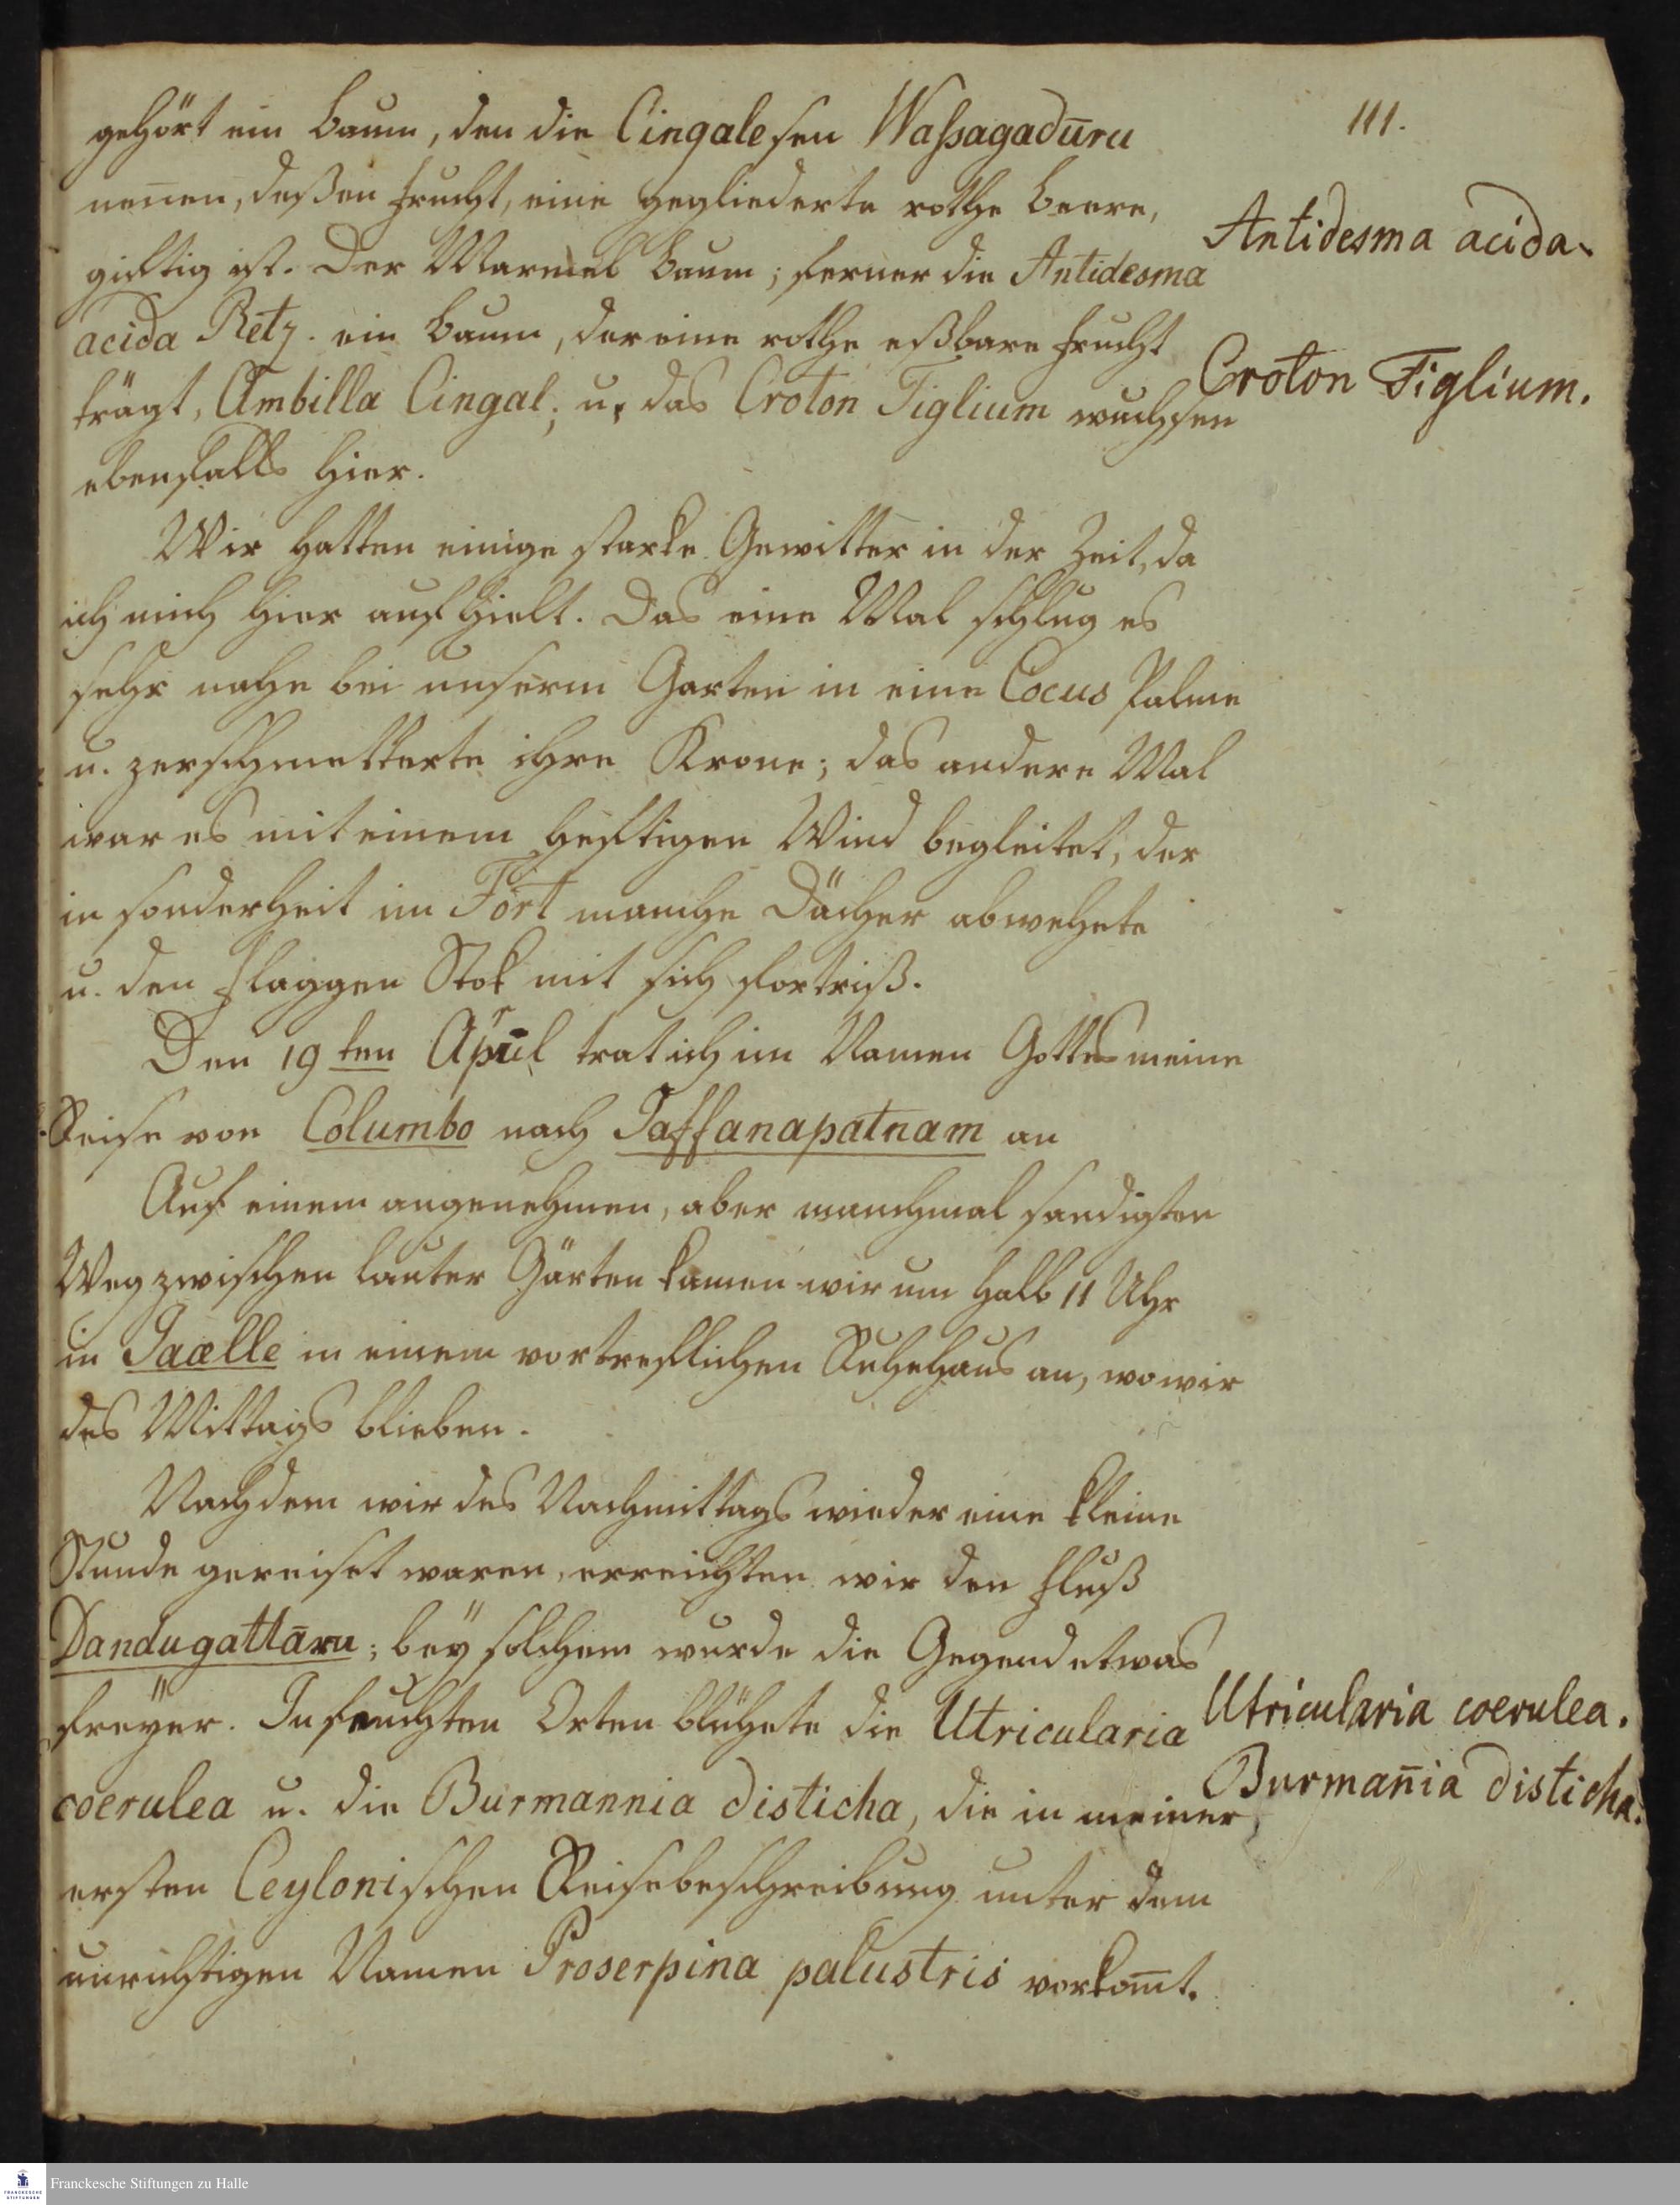 111.
gehört ein Baum, den die Cingalesen Waßagaduru
neñen, deßen Frucht, eine gegliederte rothe Beere,
giftig ist. Der Marmel Baum; ferner die Antidesma
acida Retz. ein Baum, der eine rothe eßbare Frucht
trägt, Ambilla Cingal; u. das Croton Tiglium wuchsen
ebenfalls hier.
Antidesma acida.
Croton Tiglium.
Wir hatten einige starke Gewitter in der Zeit, da
ich mich hier aufhielt. Das eine Mal schlug es
sehr nahe bei unserm Garten in eine Cocus Palme
u. zerschmetterte ihre Krone; das andere Mal
war es mit einem heftigen Wind begleitet, der
in sonderheit im Fort manche Dächer abwehete
u. den Flaggen Stok mit sich fortriß.
Den 19ten April trat ich im Namen Gottes meine
Reise von Columbo nach Jaffanapatnam an
Auf einem angenehmen, aber manchmal sandigten
Weg zwischen lauter Gärten kamen wir um halb 11 Uhr
in Jaælle in einem vortreflichen Ruhehaus an, wo wir
des Mittags blieben.
Nachdem wir des Nachmittags wieder eine kleine
Stunde gereiset waren, erreichten wir den Fluß
Dandugattāru; beÿ solchem wurde die Gegend etwas
freÿer. In feuchten Orten blühete die Utricularia
coerulea u. die Burmannia disticha, die in meiner
ersten Ceylonischen Reisebeschreibung unter dem
unrichtigen Namen Proserpina palustris vorkom̄t.
Utricularia coerulea.
Burmañia disticha.
Franckesche Stiftungen zu Halle
FRANCKESCHE
STIFTUNGEN